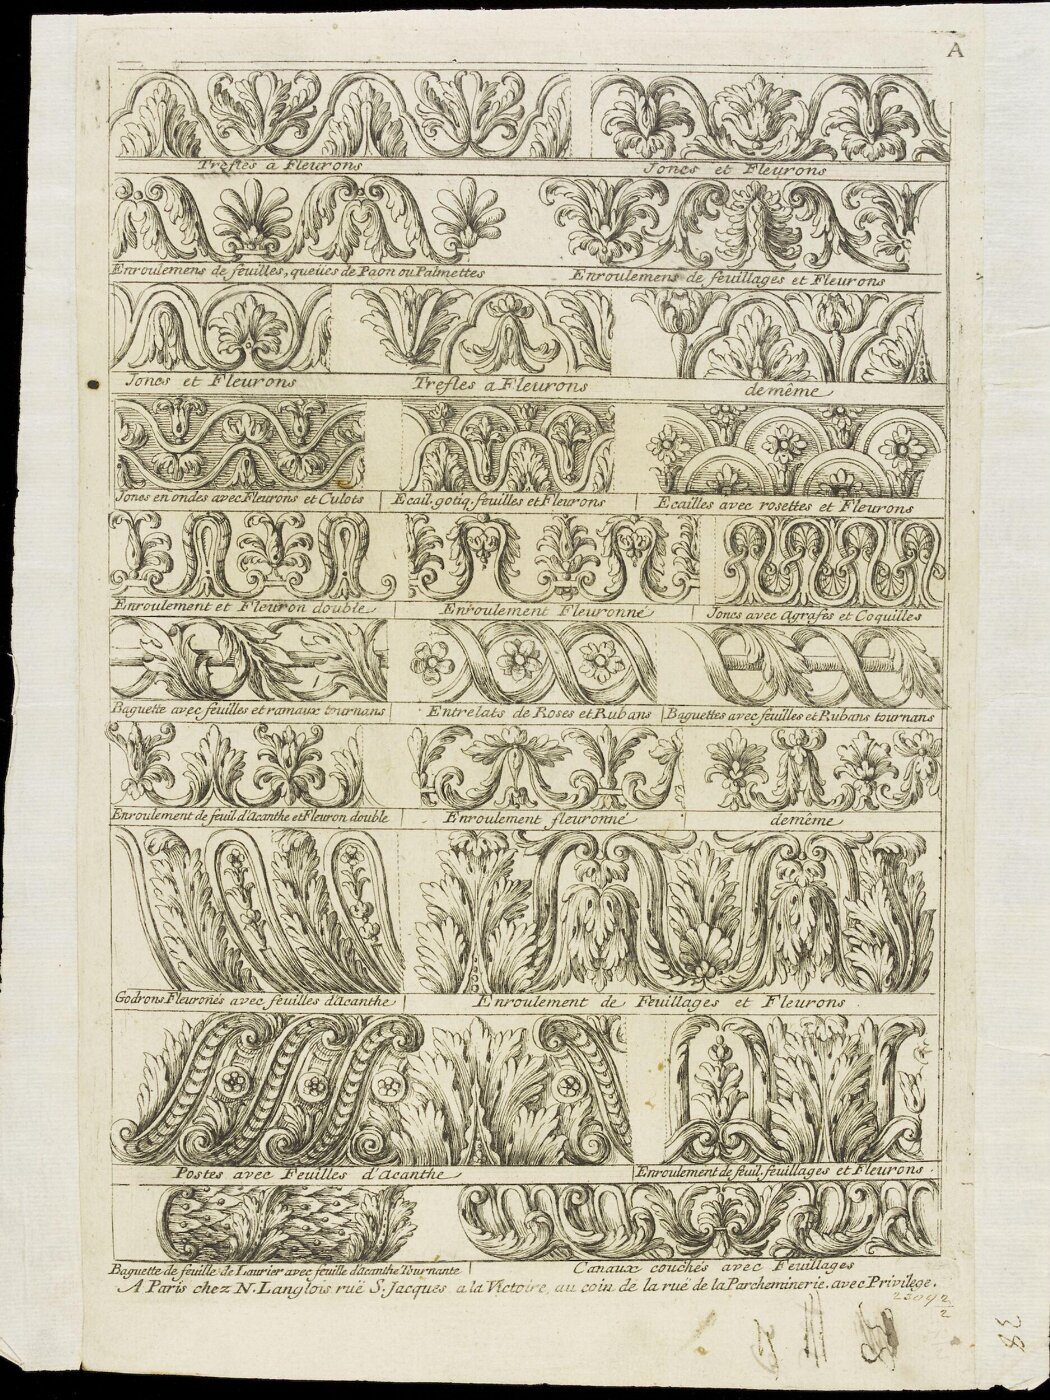 A
Trefles a Fleurons
Joncs et Fleurons
Enroulemens de feuilles, queües de Paon ou Palmettes
Enroulemens de feuillages et Fleurons
Joncs et Fleurons
Trefles a Fleurons
de même
Joncs en ondes avec Fleurons et Culots
Ecail. gotiq. feuilles et Fleurons
Ecailles avec rosettes et Fleurons
Enroulement et Fleuron double
Enroulement Fleuronné
Joncs avec Agrafes et Coquilles
Baguette avec feuilles et ramaux tournans
Entrelats de Roses et Rubans
Baguettes avec feuilles et Rubans tournans
Enroulement de feuil. d'Acanthe et Fleuron double
Enroulement fleuronné
de même
Godrons Fleuronés avec feuilles d'Acanthe
Enroulement de Feuillages et Fleurons
Postes avec Feuilles d'Acanthe
Enroulement de feuil. feuillages et Fleurons.
Baguette de feuille de Laurier avec feuille d'acanthe Tournante
Canaux couchés avec Feuillages
A Paris chez N. Langlois ruë S. Jacques a la Victoire, au coin de la ruë de la Parcheminerie. avec Privilege.
38